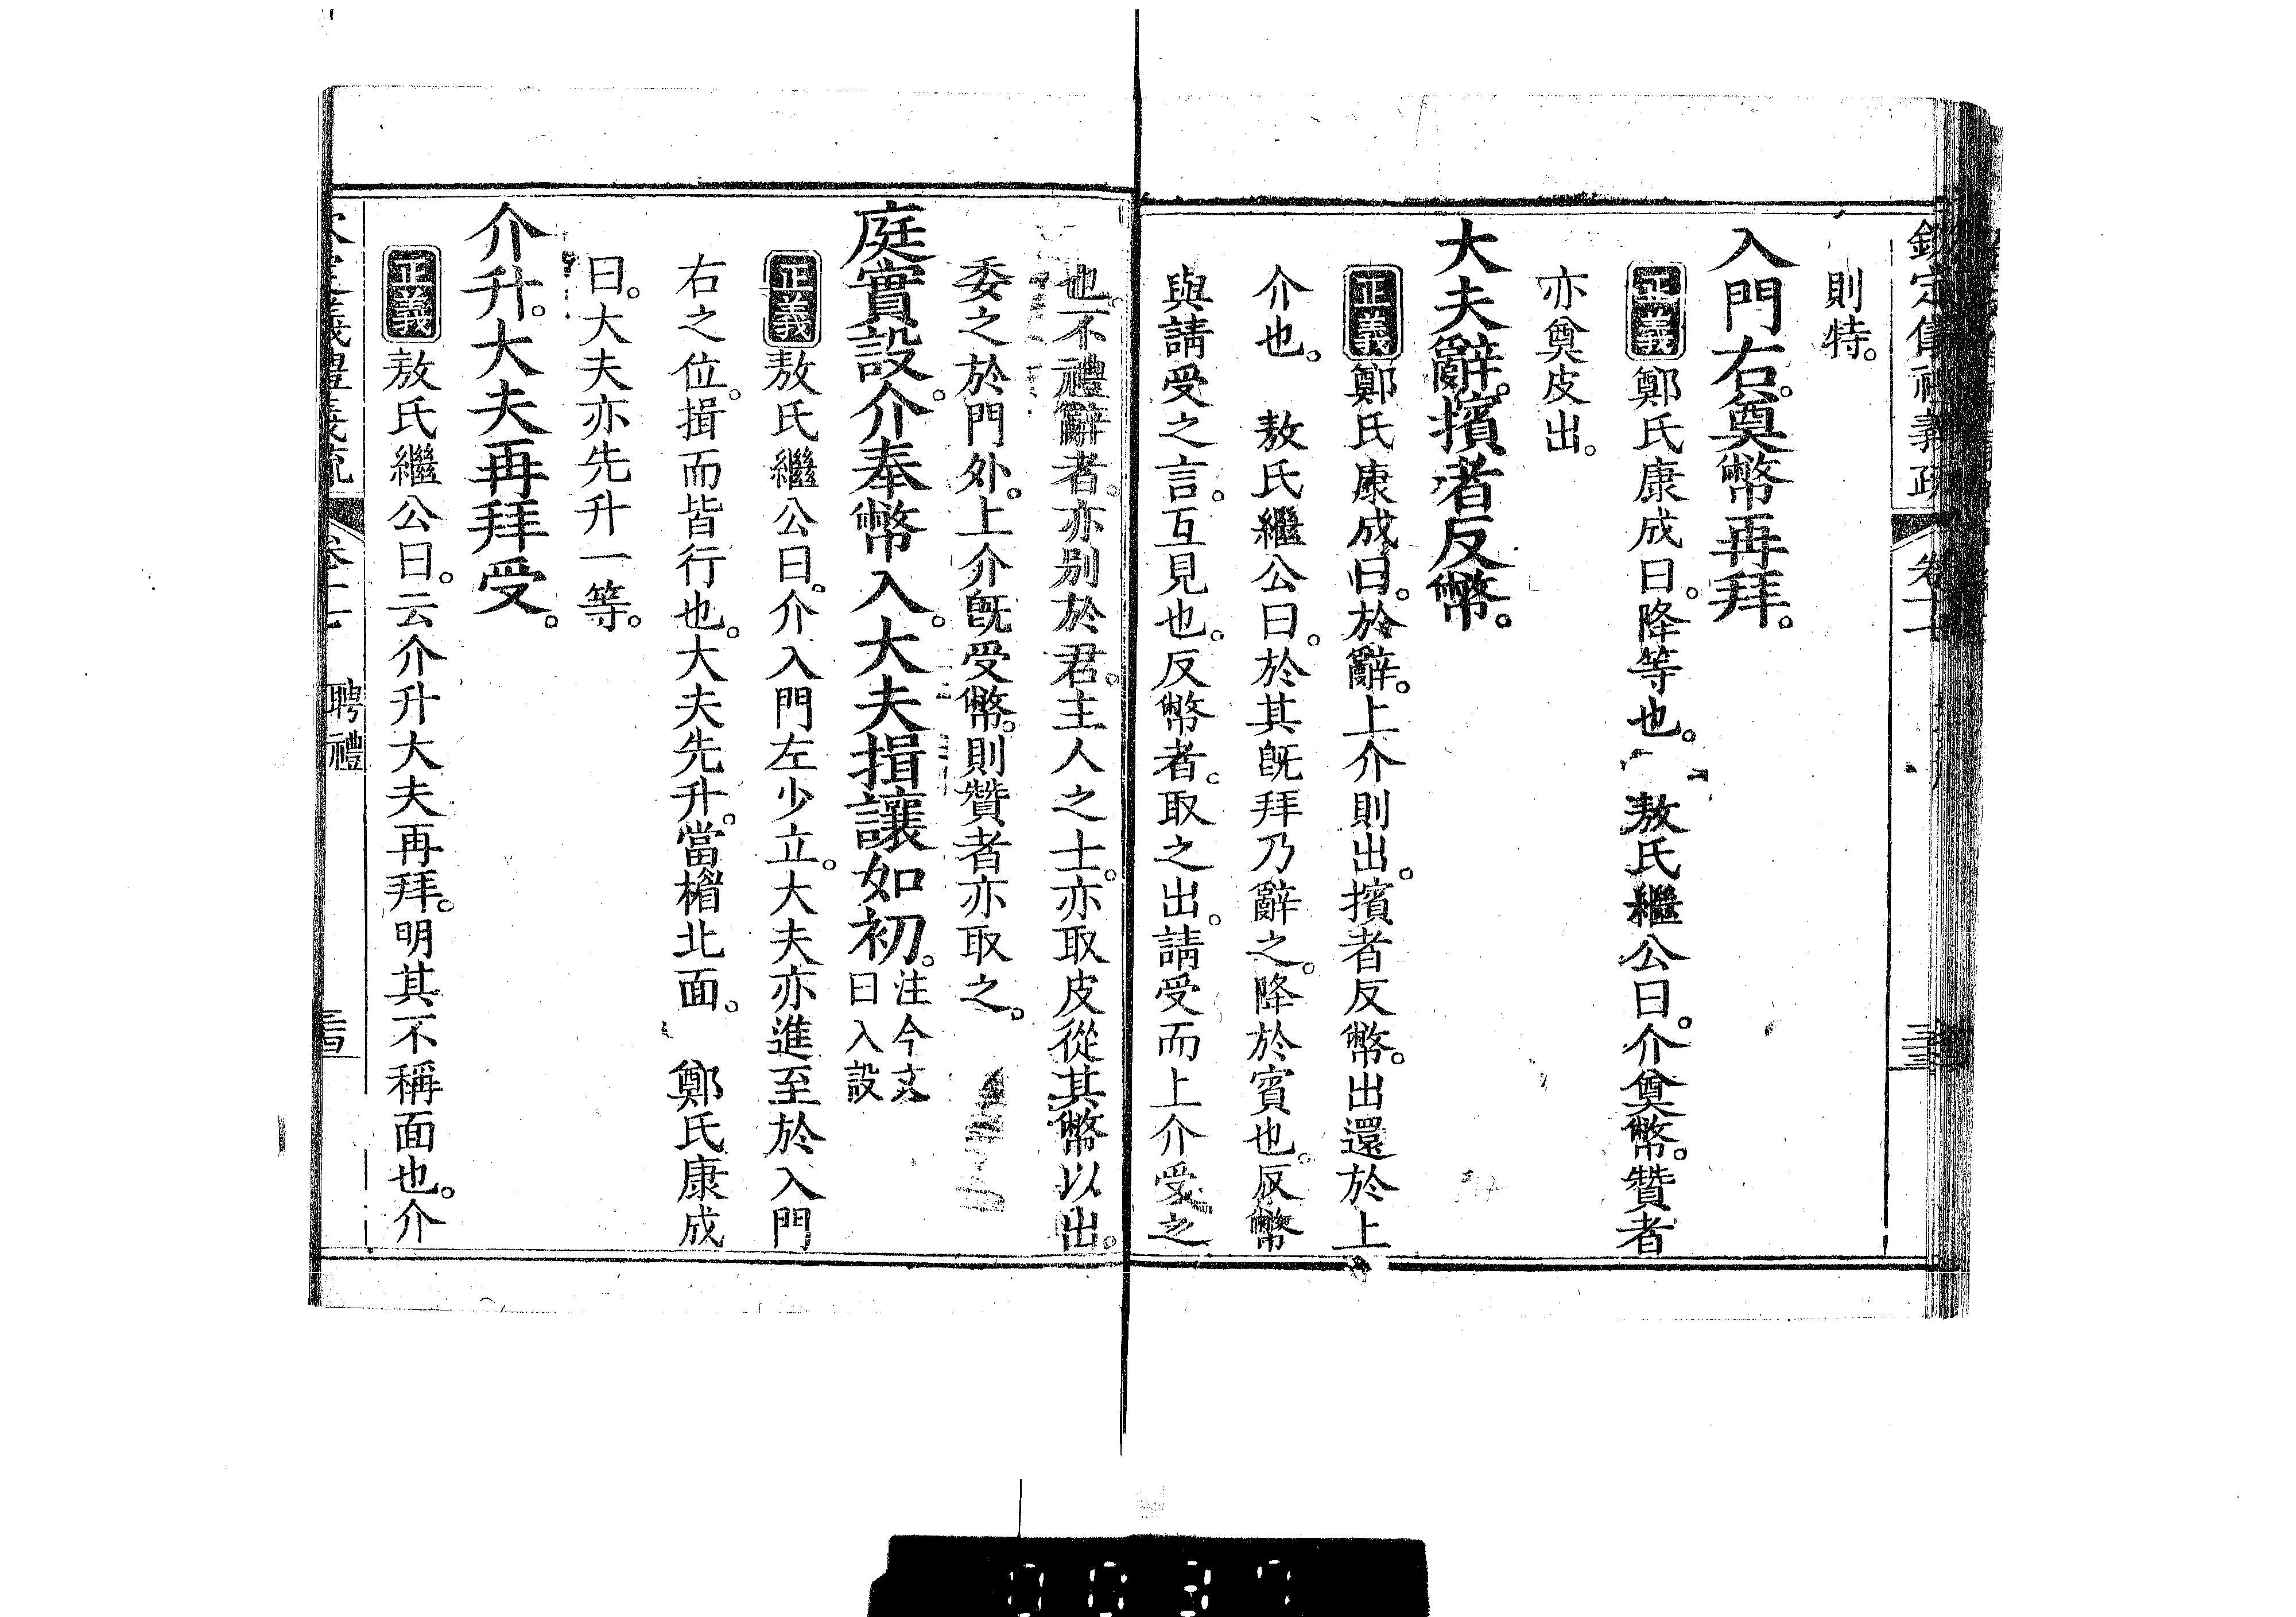 欽定儀禮義疏 卷十七
則特。
入門右。奠幣再拜。
正義鄭氏康成曰。降等也。 敖氏繼公曰。介奠幣。贊者
亦奠皮出。
大夫辭。擯者反幣。
正義鄭氏康成曰。於辭。上介則出。擯者反幣。出還於上
介也。 敖氏繼公曰。於其旣拜乃辭之。降於賓也。反幣
與請受之言。互見也。反幣者。取之出。請受而上介受之
也。不禮辭者。亦别於君。主人之士。亦取皮從其幣以出。
委之於門外。上介旣受幣。則贊者亦取之。
庭實設。介奉幣入。大夫揖讓如初。注今文
曰入設
正義敖氏繼公曰。介入門左少立。大夫亦進至於入門
右之位。揖而皆行也。大夫先升。當楣北面。 鄭氏康成
曰。大夫亦先升一等。
介升。大夫再拜受。
正義敖氏繼公曰。云介升大夫再拜。明其不稱面也。介
欽定義禮義疏 卷十七 聘禮
0037